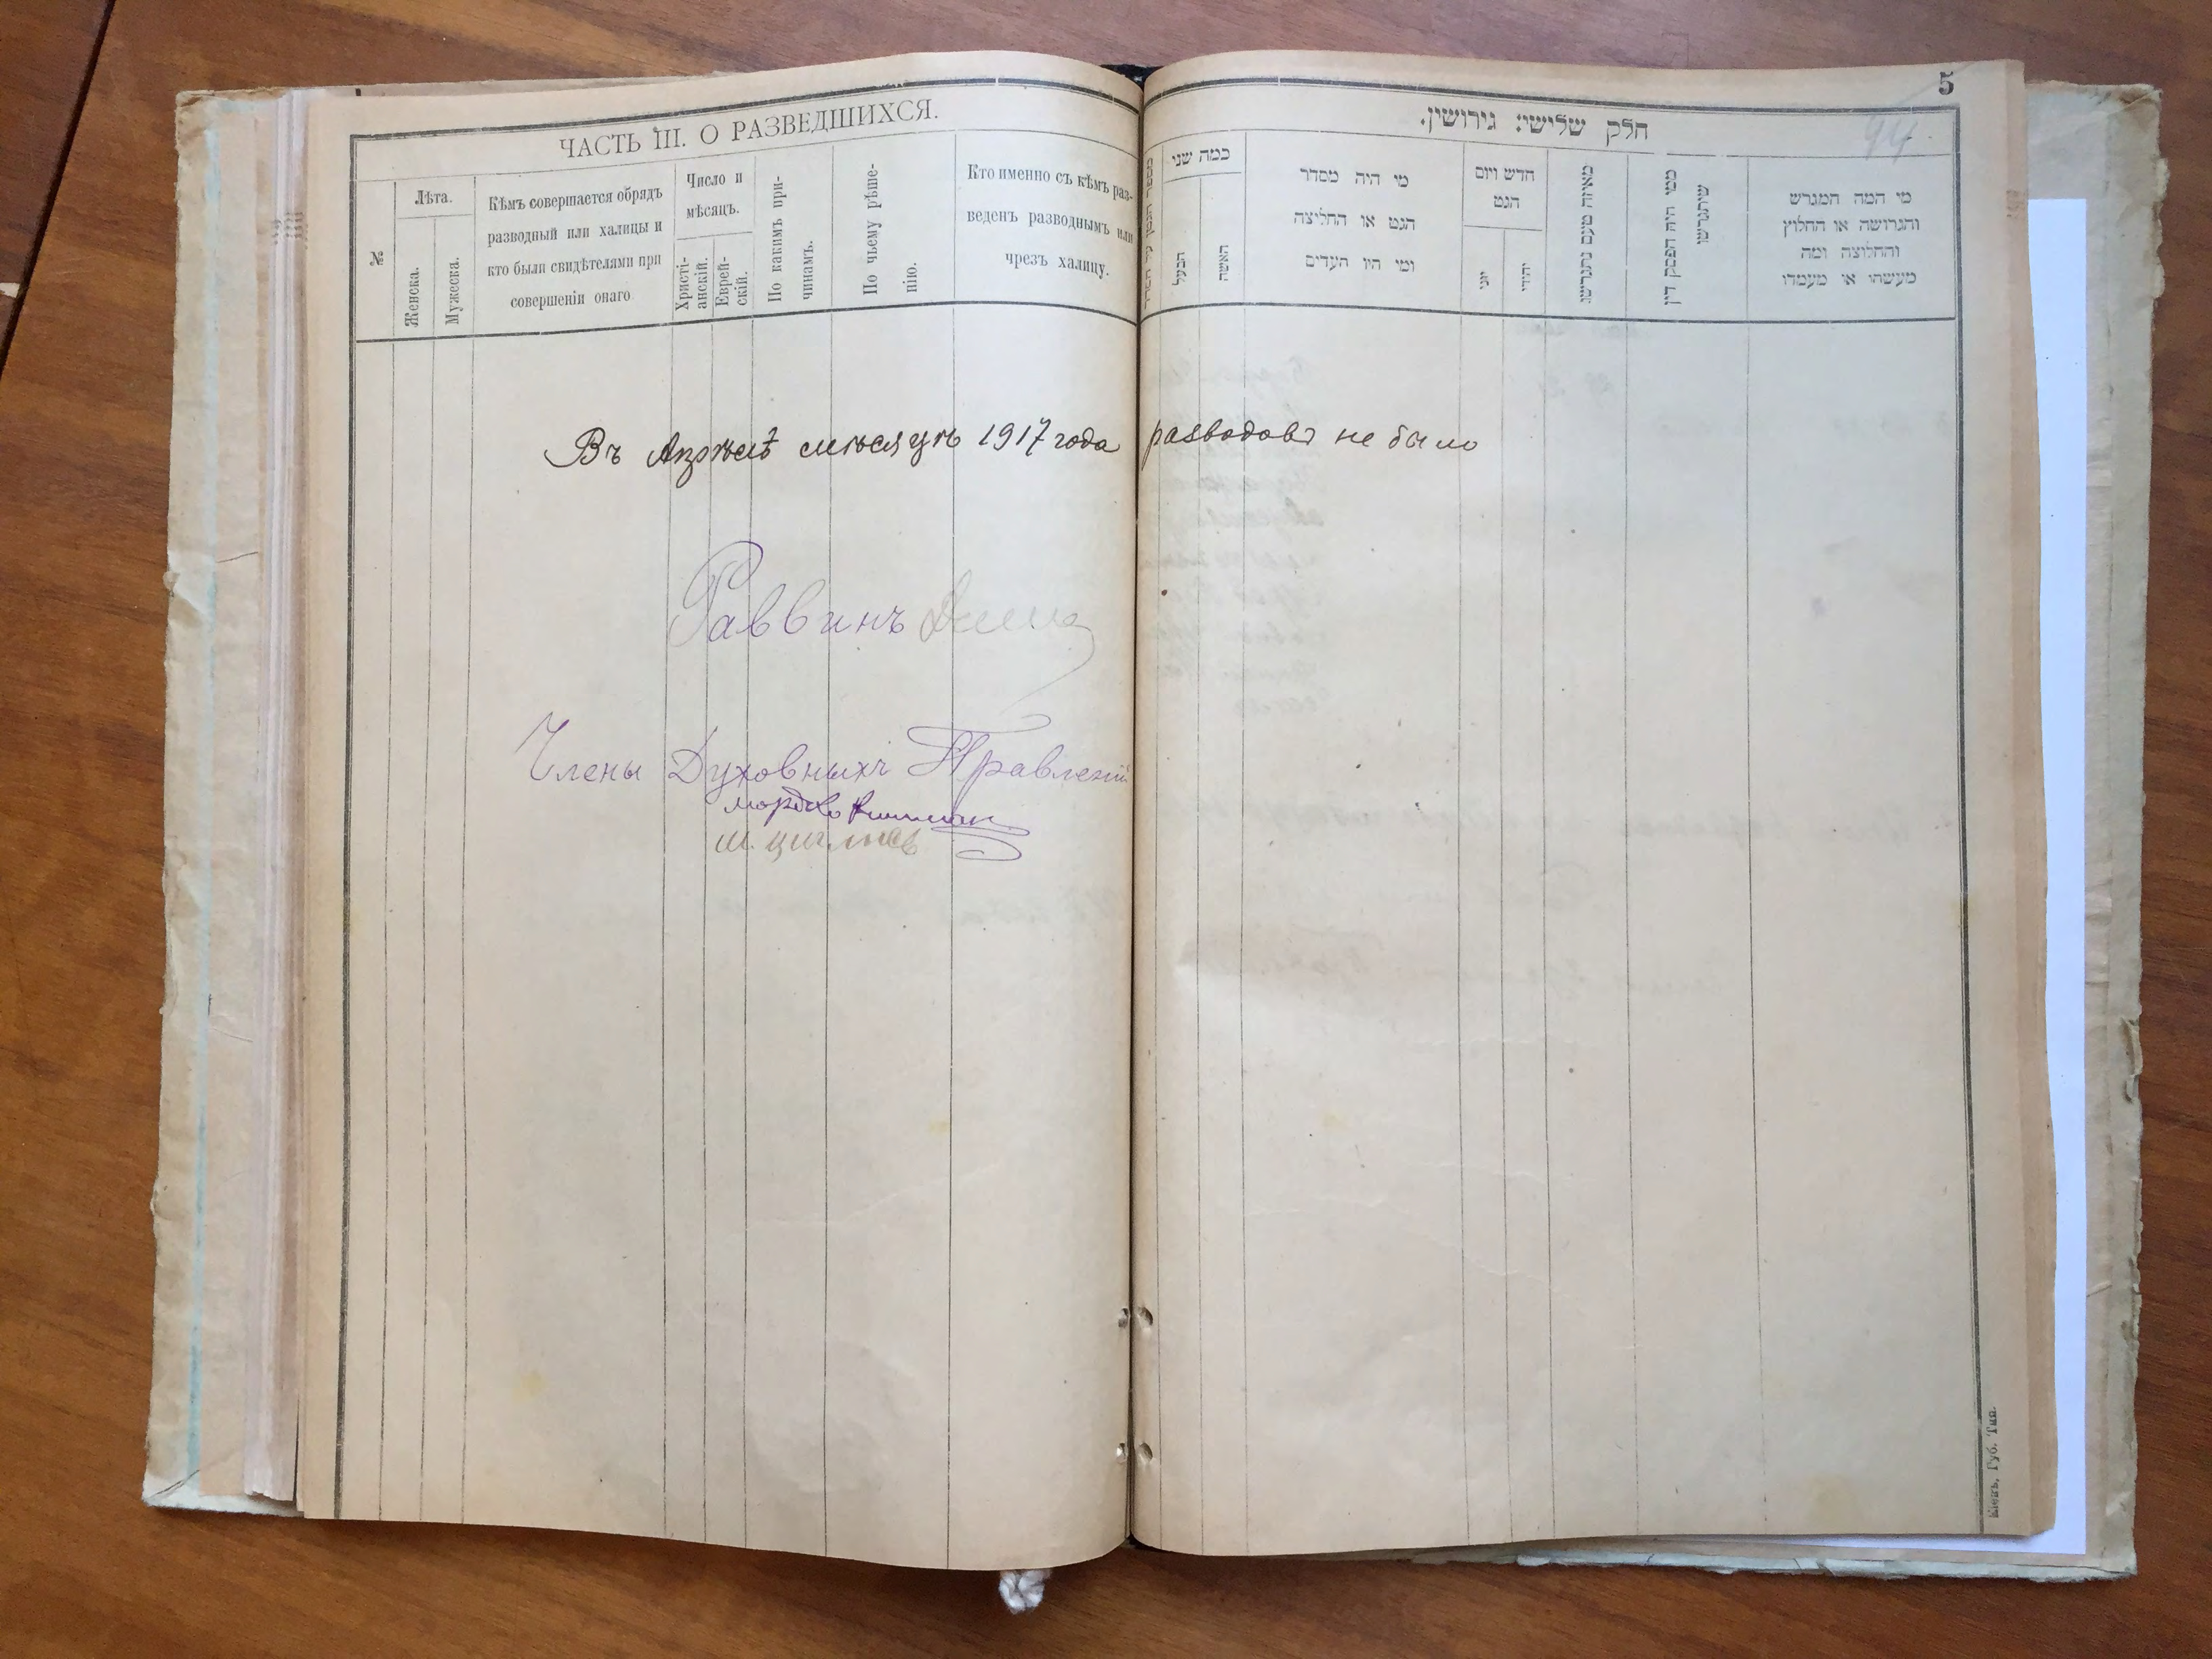 ЧАСТЬ III. О РАЗВЕДШИХСЯ.
№
Лѣта.
Женска.
Мужеска.
Кѣмъ совершается обрядъ
разводный или халицы и
кто были свидѣтелями при
совершеніи онаго
Число и
мѣсяцъ.
Христі-
анскій.
Еврей-
скій.
По какимъ при-
чинамъ.
По чьему рѣше-
нію.
Кто именно съ кѣмъ раз-
веденъ разводнымъ или
чрезъ халицу.
5
94
חלק שלישי: גירושין.
כמה שני
הבעל
האשה
מי היה מסדר
הגט או החליצה
ומי היו העדים
חדש ויום
הגט
יוני
יהודי
מאיזה טעם נתגרשו
ממי היה הפסק דין
שיתגרשו
מי המה המגרש
והגרושה או החלוץ
והחלוצה ומה
מעשהו או מעמדו
Въ Апрѣлѣ мѣсяцѣ 1917 года разводовъ не было
Раввинъ
Члены Духовныхъ Правленій
Кіевъ, Губ. Тип.